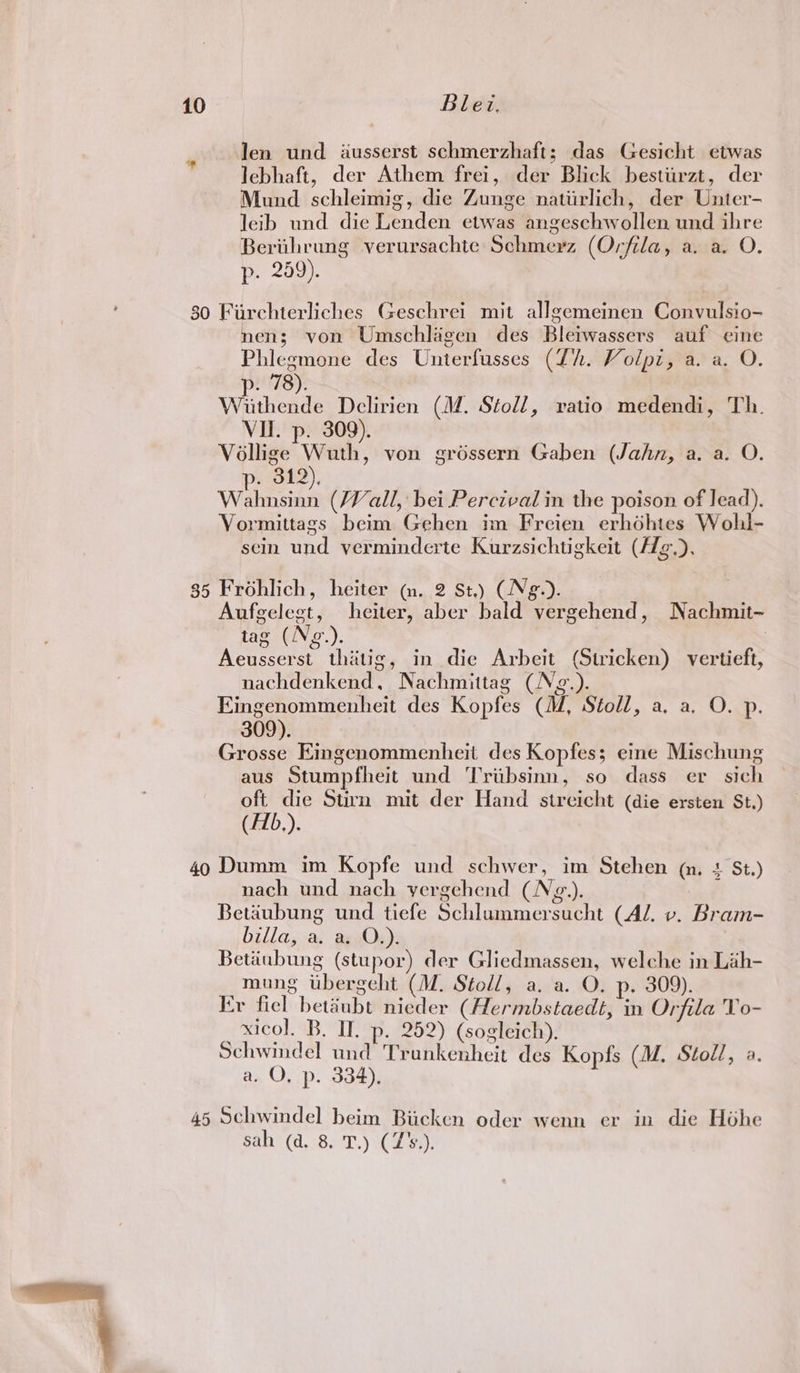 10 Blei.
len und äusserst schmerzhaft; das Gesicht etwas
lebhaft, der Athem frei, der Blick bestürzt, der
Mund schleimig, die Zunge natürlich, der Unter-
leib und die Lenden etwas angeschwollen und ihre
Berührung verursachte Schmerz (Orfila, a. a. O.
p. 259).
30 Fürchterliches Geschrei mit allgemeinen Convulsio-
nen; von Umschlägen des Bleiwassers auf eine
Phlegmone des Unterfusses (Th. Volpi, a. a. O.
p. 78).
Wüthende Delirien (M. Stoll, ratio medendi, Th.
VII. p. 309).
Völlige Wuth, von grössern Gaben (Jahn, a. a. O.
p. 312).
Wahnsinn (Wall, bei Percival in the poison of lead).
Vormittags beim Gehen im Freien erhöhtes Wohl-
sein und verminderte Kurzsichtigkeit (Hg.).
35 Fröhlich, heiter (n. 2 St.) (Ng.).
Aufgelegt, heiter, aber bald vergehend, Nachmit-
tag (Ng.).
Aeusserst thätig, in die Arbeit (Stricken) vertieft,
nachdenkend, Nachmittag (Ng.).
Eingenommenheit des Kopfes (M, Stoll, a. a. O. p.
309).
Grosse Eingenommenheit des Kopfes; eine Mischung
aus Stumpfheit und Trübsinn, so dass er sich
oft die Stirn mit der Hand streicht (die ersten St.)
(Hb.).
40 Dumm im Kopfe und schwer, im Stehen (n. St.)
nach und nach vergehend (Ng.).
Betäubung und tiefe Schlummersucht (Al. v. Bram-
billa, a. a. O.).
Betäubung (stupor) der Gliedmassen, welche in Läh-
mung übergeht (M. Stoll, a. a. O. p. 309).
Er fiel betäubt nieder (Hermbstaedt, in Orfila To-
xicol. B. II. p. 252) (sogleich).
Schwindel und Trunkenheit des Kopfs (M. Stoll, a.
a. O. p. 334).
45 Schwindel beim Bücken oder wenn er in die Höhe
sah (d. 8. T.) (Ts.).